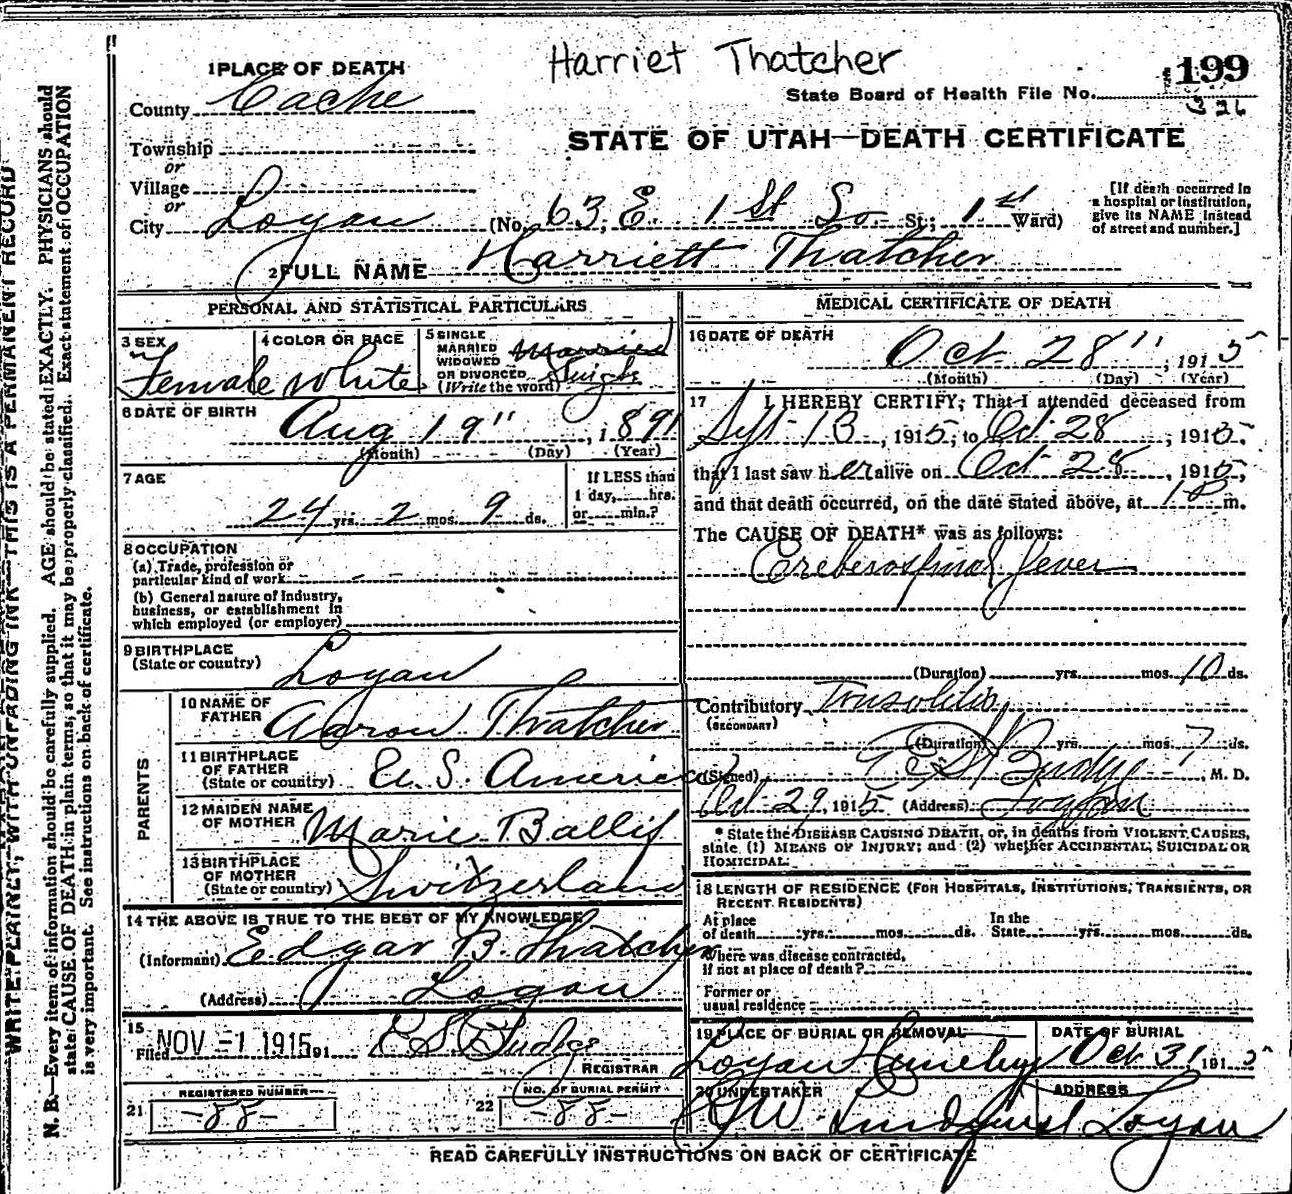 Harriet Thatcher
199
326
State Board of Health File No.
STATE OF UTAH—DEATH CERTIFICATE
1 PLACE OF DEATH
County Cache
Township
or
Village
or
City Logan (No. 63 E. 1 St So. St.; 1st Ward)
[If death occurred in
a hospital or institution,
give its NAME instead
of street and number.]
2 FULL NAME Harriett Thatcher
PERSONAL AND STATISTICAL PARTICULARS
3 SEX
Female
4 COLOR OR RACE
White
5 SINGLE
MARRIED
WIDOWED
OR DIVORCED
(Write the word)
Married
Single
6 DATE OF BIRTH
Aug 19", 1891
(Month) (Day) (Year)
7 AGE
24 yrs. 2 mos. 9 ds.
If LESS than
1 day, hrs.
or min.?
8 OCCUPATION
(a) Trade, profession or
particular kind of work
(b) General nature of industry,
business, or establishment in
which employed (or employer)
9 BIRTHPLACE
(State or country)
Logan
PARENTS
10 NAME OF
FATHER
Aaron Thatcher
11 BIRTHPLACE
OF FATHER
(State or country)
U.S. America
12 MAIDEN NAME
OF MOTHER
Marie Ballif
13 BIRTHPLACE
OF MOTHER
(State or country)
Switzerland
14 THE ABOVE IS TRUE TO THE BEST OF MY KNOWLEDGE
(Informant) Edgar B. Thatcher
(Address) Logan
15
Filed NOV -1 1915 191
E S Budge
REGISTRAR
21
REGISTERED NUMBER
-88-
22
NO. OF BURIAL PERMIT
-88-
MEDICAL CERTIFICATE OF DEATH
16 DATE OF DEATH
Oct. 28", 1915
(Month) (Day) (Year)
17 I HEREBY CERTIFY; That I attended deceased from
Sept 13, 1915, to Oct 28, 1915,
that I last saw her alive on Oct 28, 1915,
and that death occurred, on the date stated above, at m.
The CAUSE OF DEATH* was as follows:
Crebrospinal fever
(Duration) yrs. mos. 10 ds.
Contributory
(SECONDARY)
(Duration) yrs. mos. 7 ds.
(Signed) E S Budge, M. D.
Oct 29, 1915 (Address) Logan
* State the DISEASE CAUSING DEATH, or, in deaths from VIOLENT CAUSES,
state (1) MEANS OF INJURY; and (2) whether ACCIDENTAL, SUICIDAL OR
HOMICIDAL.
18 LENGTH OF RESIDENCE (FOR HOSPITALS, INSTITUTIONS, TRANSIENTS, OR
RECENT RESIDENTS)
At place
of death yrs. mos. ds.
In the
State yrs. mos. ds.
Where was disease contracted,
if not at place of death?
Former or
usual residence
19 PLACE OF BURIAL OR REMOVAL
Logan
DATE OF BURIAL
Oct 31 1915
20 UNDERTAKER
W. Lindquist
ADDRESS
Logan
READ CAREFULLY INSTRUCTIONS ON BACK OF CERTIFICATE
WRITE PLAINLY, WITH UNFADING INK—THIS IS A PERMANENT RECORD
N. B.—Every item of information should be carefully supplied. AGE should be stated EXACTLY. PHYSICIANS should
state CAUSE OF DEATH in plain terms, so that it may be properly classified. Exact statement of OCCUPATION
is very important. See instructions on back of certificate.